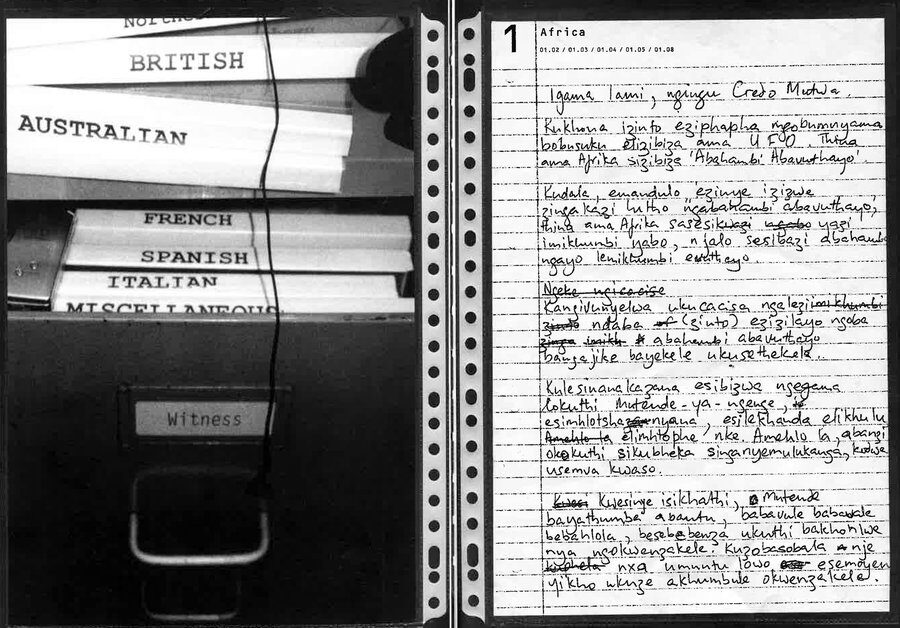 BRITISH
AUSTRALIAN
FRENCH
SPANISH
ITALIAN
MISCELLANEOUS
Witness
1
Africa
01.02 / 01.03 / 01.04 / 01.05 / 01.08
Igama lami, ngingu Credo Mutwa.
Kukhona izinto eziphapha ngobumnyama
bobusuku elizibiza ama UFO. Thina
ama Afrika sizibiza 'Abahambi Abavuthayo'.
Kudala, emandulo ezinye izizwe
zingakazi lutho "ngabahambi abavuthayo,
thina ama Afrika yazi
imikhumbi yabo, njalo sesibazi
ngayo lemikhumbi
Ngeke ngicacise
Kangivunyelwa ukucacisa
ndaba of (zinto) ezizilayo ngoba
abahambi abavuthayo
bangajike bayekele ukusethekela.
Kulesinanakazana esibizwa ngegama
lokuthi Mutende-ya-ngenge,
esilekhanda elikhulu
elimhlophe nke. Amehlo la, abanzi
okokuthi sikubheka
usemva kwaso.
Kwesinye isikhathi, Mutende
bayathumba abantu, babavule
babahlola, ukuthi bakhohlwe
nya ngokwenzakele. nje
nxa umuntu lowo
yikho ukuze akhumbule okwenzakele.